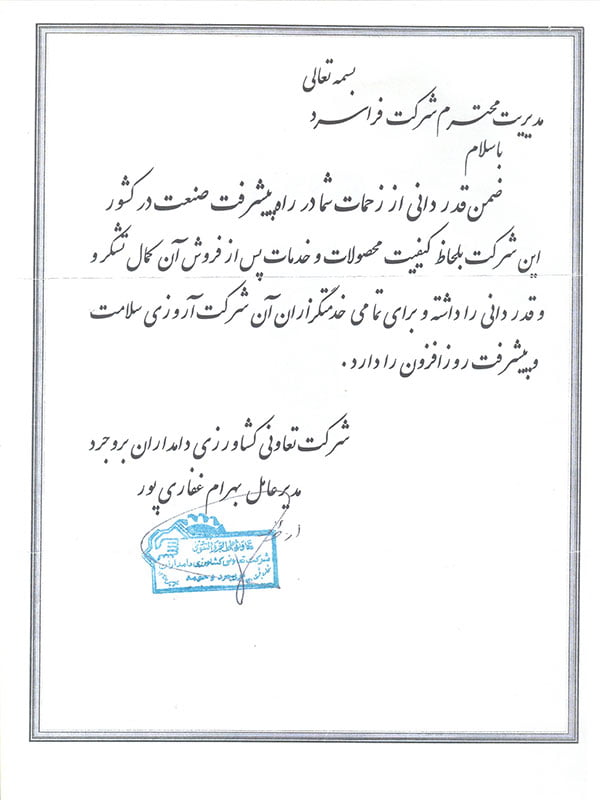 بسمه تعالی
مدیریت محترم شرکت فراسرد
باسلام
ضمن قدر دانی از زحمات شما در راه پیشرفت صنعت در کشور
این شرکت بلحاظ کیفیت محصولات و خدمات پس از فروش آن کمال تشکر و
و قدر دانی را داشته و برای تمامی خدمتگزاران آن شرکت آروزی سلامت
و پیشرفت روزافزون را دارد .
شرکت تعاونی کشاورزی دامداران بروجرد
مدیرعامل بهرام غفاری پور
شرکت تعاونی کشاورزی دامداران